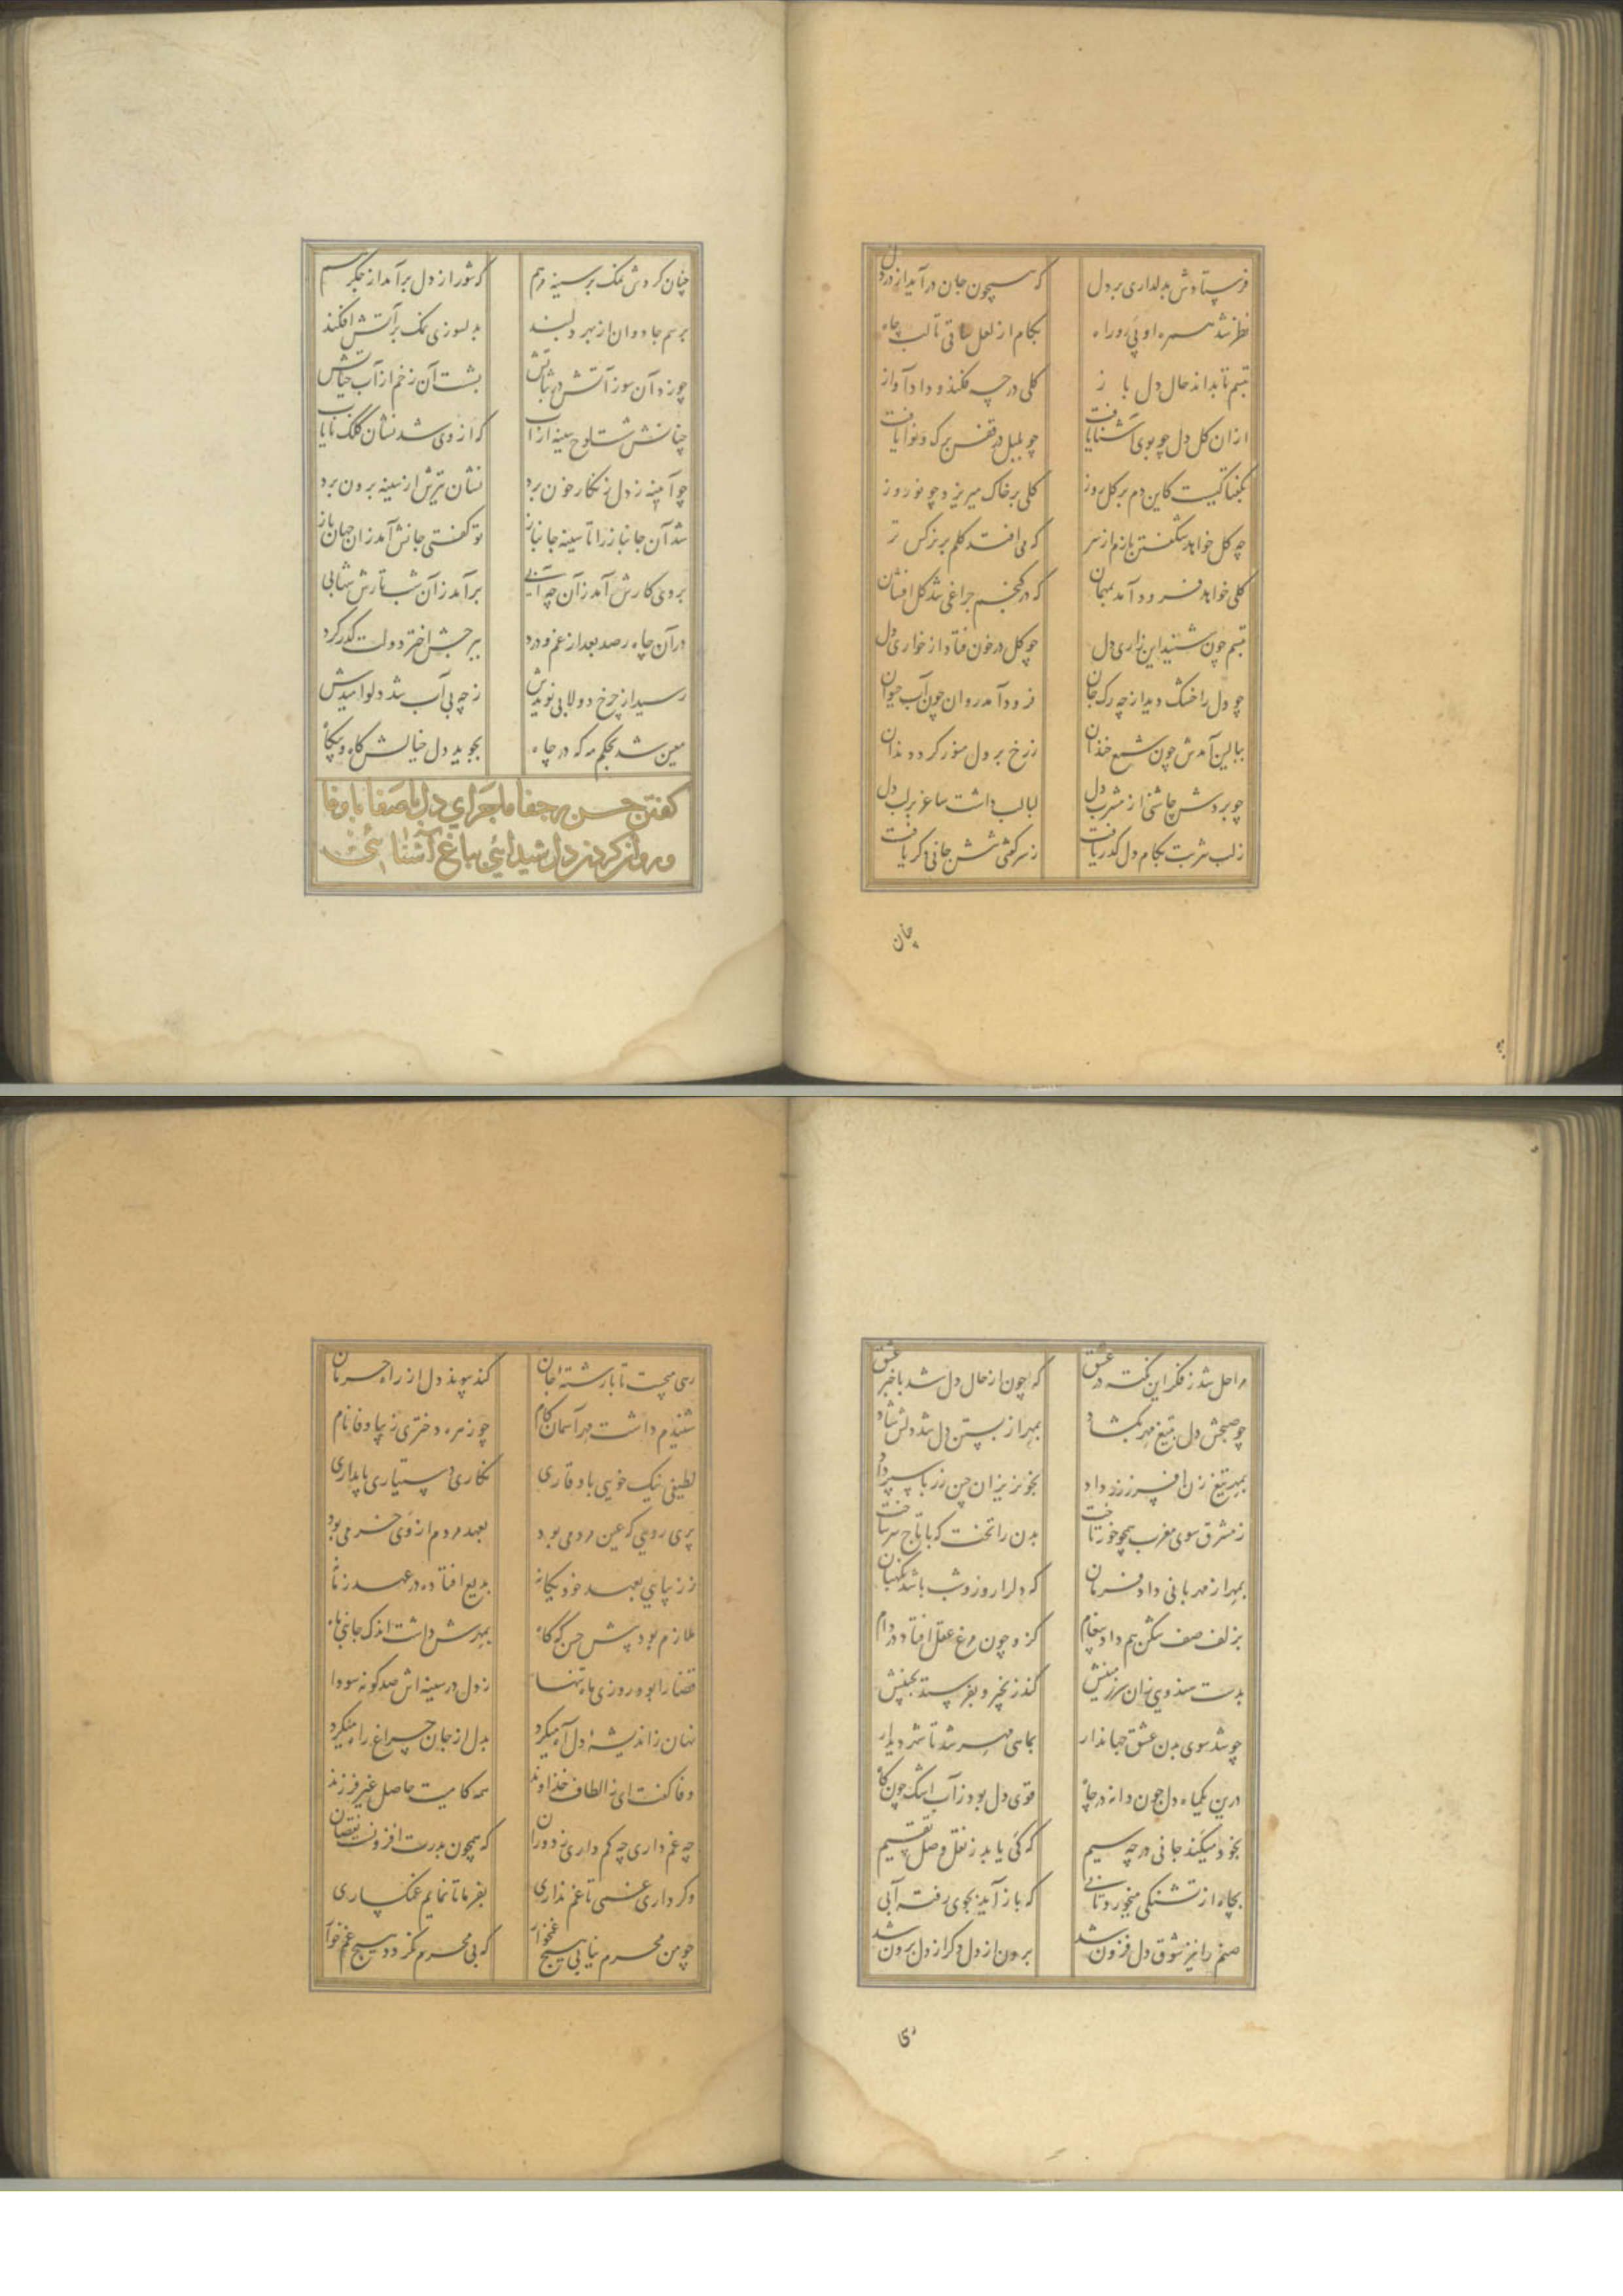 فرستادش بدلداری بر دل که همچون جان درآید از در دل
نظر شد همره او پی رو راه بکام از لعل ساقی تا لب چاه
تبسم تا بداند حال دل باز کلی در چه فکند و داد آواز
ازان کل دل چو بوی آشنا یافت چو بلبل در قفس برک و نوا یافت
بگفتا کیست کاین دم بر کل روز کلی بر خاک میریزد چو نوروز
چه کل خواهد شگفتن بازم از سر که می افتد کلم بر نرکس تر
کلی خواهد فرود آمد بمهمان که در کنجم چراغی شد کل افشان
تبسم چون شنید این زاری دل چو کل در خون فتاد از خواری دل
چو دل را خشک دید از چه رک جان فرود آمد روان چون آب حیوان
ببالین آمدش چون شمع خندان زرخ بر دل منور کرد زندان
چو بردش چاشنی از مشرب دل لبالب داشت ساغر بر لب دل
زلب شربت بکام دل کذر یافت زسرکشی شش جانی دکر یافت
چنان
چنان کردش نمک بر سینه مرهم که شور از دل برآمد از جکر هم
برسم جاودان از بهر دلبند بدلسوزی نمک بر آتش افکند
چو زد آن سوز آتش در ثباتش بشست آن زخم از آب حیاتش
چنانش شست لوح سینه از آب که از وی شد نشان کلک نایاب
چو آیینه ز دل زنکار خون برد نشان تیرش از سینه برون برد
شد آن جانباز را تا سینه جانباز تو کفتی جانش آمد زان جهان باز
بروی کارش آمد زان چه آبی برآمد زان شب تارش شهابی
در آن چاه رصد بعد از غم و درد ببرجش اختر دولت کذر کرد
رسید از چرخ دولابی نویدش ز چه بی آب شد دلو امیدش
معین شد بحکم مه که در چاه بجوید دل خیالش کاه و بیکاه
کفتن حسن پر جفا ماجرای دل با صفا با وفا
و پرواز کردن دل شیدائی بباغ آشنائی
مرا حل شد ز فکر این نکته در عشق که چون از حال دل شد با خبر عشق
چو صبحش دل بتیغ مهر بکشاد بمهر از بستن دل شد دلش شاد
بمهر تیغ زن افسر زر داد بخونریزان چین زرپا سپر داد
ز مشرق سوی مغرب همچو خور تاخت بدن را تخت که با تاج سر ساخت
بمهر از مهربانی داد فرمان که دل را روز و شب باشد نکهبان
بزلف صف شکن هم داد پیغام کزو چون مرغ عقل افتاد در دام
بدست هندوی زان سرزمینش کند زنجیر و بفرستد بچینش
چو شد سوی بدن عشق جهاندار بماهی مهر شد تا شهر دیدار
درین یکماه دل چون دانه در چاه قوی دل بود ز آب اشک چون کاه
بخود میکند جانی در چه سیم که کی یابد ز نقل وصل تقسیم
بچاه از تشنکی میخورد تابی که باز آید بجوی رفته آبی
صنم را نیز شوق دل فزون شد برون از دل دکر از دل برون شد
رهی
رهی میجست تا با رشتهٔ جان کند پیوند دل از راه حرمان
شنیدم داشت مهر آسمان کام چو زهره دختری زیبا وفا نام
لطیفی نیک خویی با وقاری نکاری دستیاری پایداری
پری رویی که عین مردمی بود بعهد مردم از وی خرمی بود
ز زیبایی بعهد خود یکانه بدیع افتاده در عهد زمانه
ملازم بود پیش حسن که کاه بمهرش داشت اندک جانبی ماه
قضا را بود روزی ماه تنها ز دل در سینه اش صد کونه سودا
نهان ز اندیشهٔ دل آه میکرد بدل از جان چراغ راه میکرد
وفا کفت ای ز الطاف خداوند همه کامیت حاصل غیر فرزند
چه غم داری چه کم داری ز دوران که همچون بدرت افزونست نقصان
وکر داری غمی تا غم نداری بفرما تا نمایم غمکساری
چو من محرم نیابی هیچ غمخوار که بی محرم نکردد هیچ غم خوار